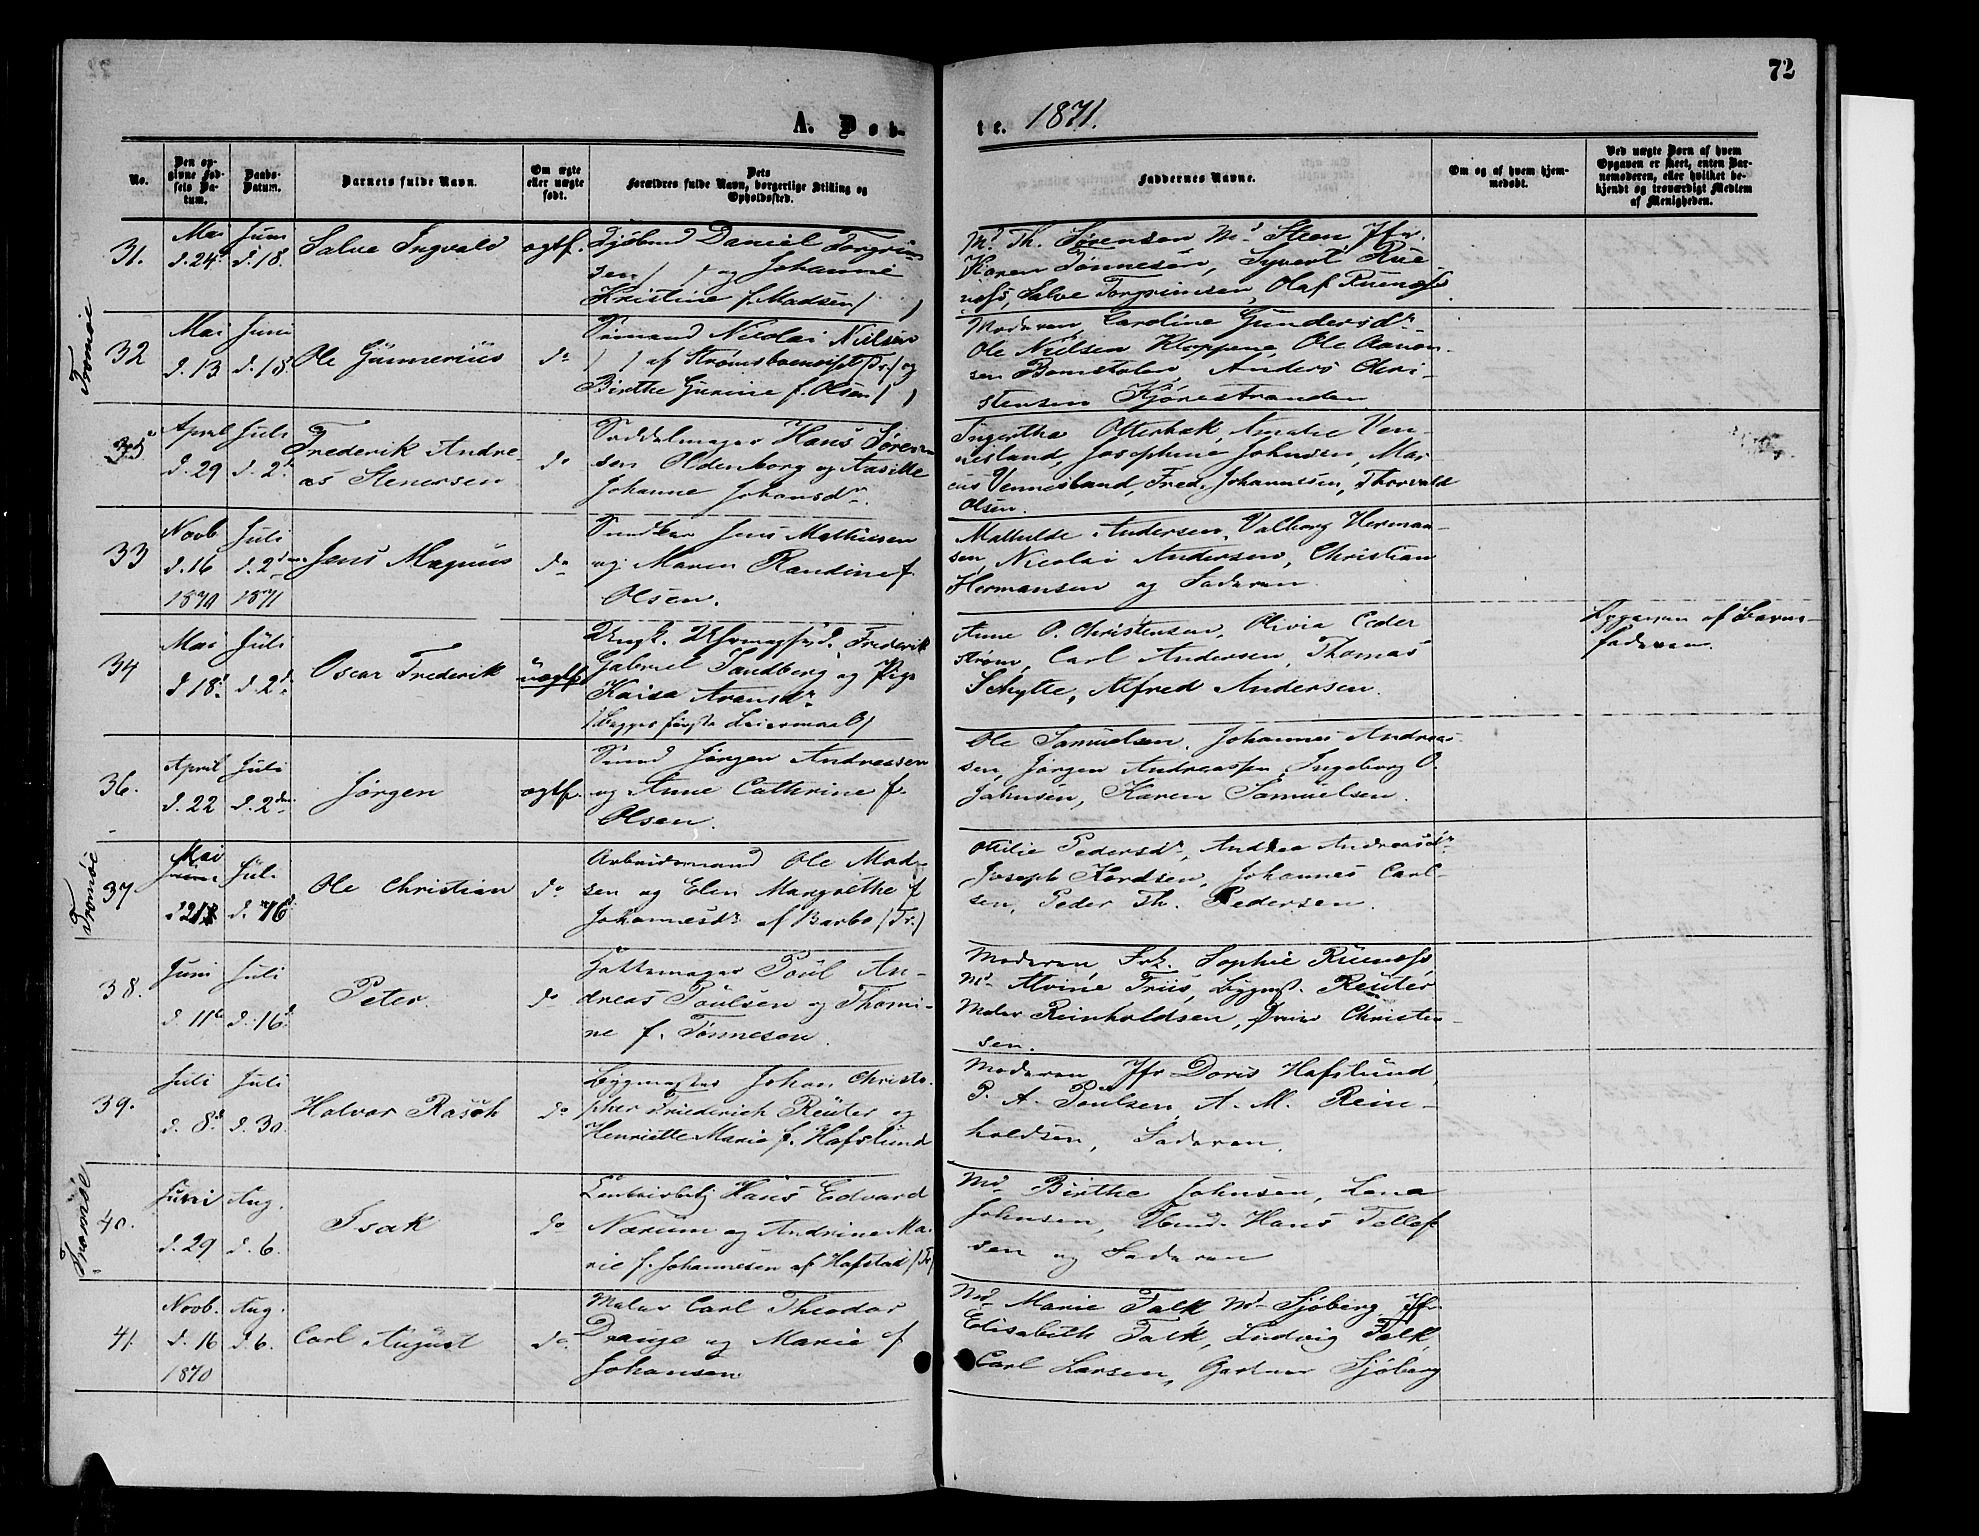 72
A. Døb-
te. 1871.
No.
Den op-
givne Fød-
sels Da-
tum.
Daabs-
Datum.
Barnets fulde Navn.
Om ægte
eller uægte
født.
Dets
Forældres fulde Navn, borgerlige Stilling og
Opholdssted.
Faddernes Navne.
Om og af hvem hjem-
medøbt.
Ved uægte Børn af hvem
Opgaven er skeet, enten Bar-
nemoderen, eller hvilket be-
kjendt og troværdigt Medlem
af Menigheden.
31.
Mai
d. 24
Juni
d. 18.
Salve Ingvald
ægtf.
Daniel Torgrim-
sen / / og Johanne
Kristine f. Madsen / /
Md. Th. Sørensen, Md. Steen, Jfr.
Karen Tønnesen, Syvert Rue
næss, Salve Torgrimsen, Olaf Ruenæss
Tromøe
32
Mai
d. 13
Juni
d. 18
Ole Gunnerius
do
Sømand Nicolai Nielsen
/ / af Strømsboens (Tr.) og
Birthe Gurine f. Olsen / /
Moderen, Caroline Gundersdr
Ole Nielsen Kloppene, Ole Aanon-
sen Bomstolen, Anders Chri-
stensen Kjørrestranden
35
April
d. 29
Juli
d. 2
Frederik Andre-
as Stenersen
do
Saddelmager Hans Søren-
sen Oldenborg og Aasille
Johanne Johansdr.
Ingertha Otterbæk, Amalie Ven-
nesland, Josephine Johnsen, Mar-
cus Vennesland, Fred. Johannesen, Thorvald
Olsen.
33
Novb
d. 16
1870
Juli
d. 2den
1871
Jens Magnus
do
Jens Mathisen
og Maren Randine f.
Olsen.
Mathilde Andersen, Valborg Herman-
sen, Nicolai Andersen, Christian
Hermansen og Faderen
34
Mai
d 18
Juli
d. 2
Oscar Frederik
uægtf
Ungk. Frederik
Gabriel Sandberg og Pige
Kaisa Aronsdr
/Begges første Leiermaal/
Anne O. Christensen, Olivia Ceder
strøm, Carl Andersen, Thomas
Schytte, Alfred Andersen.
Opgaven af Barne-
faderen.
36.
April
d. 22
Juli
d. 2den
Jørgen
ægtf.
Jørgen Andreasen
og Anne Cathrine f.
Olsen.
Ole Samuelsen, Johannes Andreas-
sen, Jørgen Andreassen, Ingeborg O.
Johnsen, Karen Samuelsen.
Tromøe
37.
Mai
d 21
Juli
d. 16
Ole Christian
do
Arbeidsmand Ole Mad-
sen og Elen Margrethe f
Johannesdr. af Barbo (Tr.)
Otilie Pedersdr, Andrea Andreasdr
Joseph Knudsen, Johannes Carl-
sen, Peder Th. Pedersen.
38.
Juni
d. 11
Juli
d. 16
Peter.
do
Hattemager Poul An-
dreas Poulsen og Thomi-
ne f. Tønnesen.
Moderen, Frk. Sophie Ruenæss,
Md. Alvine Friis, Bygmst. Reuter
Maler Reinholdsen, Christen-
sen.
39.
Juli
d. 8
Juli
d. 30.
Halvor Rasch
do
Bygmester Johan Christo-
pher Friederich Reuter og
Henriette Marie f. Hafslund
Moderen, Jfr Doris Hafslund,
P. A. Poulsen, A. M. Rein-
holdsen, Faderen.
Tromøe
40.
Juni
d. 29
Aug.
d. 6.
Isak
do
Hans Edvard
Nærum og Andrine Ma-
rie f. Johannesen af Hafstad (Tr.)
Md. Birthe Johnsen, Lena
Johnsen, Hans Tellef
sen og Faderen
41.
Novb.
d. 16
1870
Aug.
d. 6.
Carl August
do.
Maler Carl Theodor
Drange og Marie f
Johansen
Md. Marie Falk, Md. Sjøberg, Jfr
Elisabeth Falk, Ludvig Falk,
Carl Larsen, Gartner Sjøberg